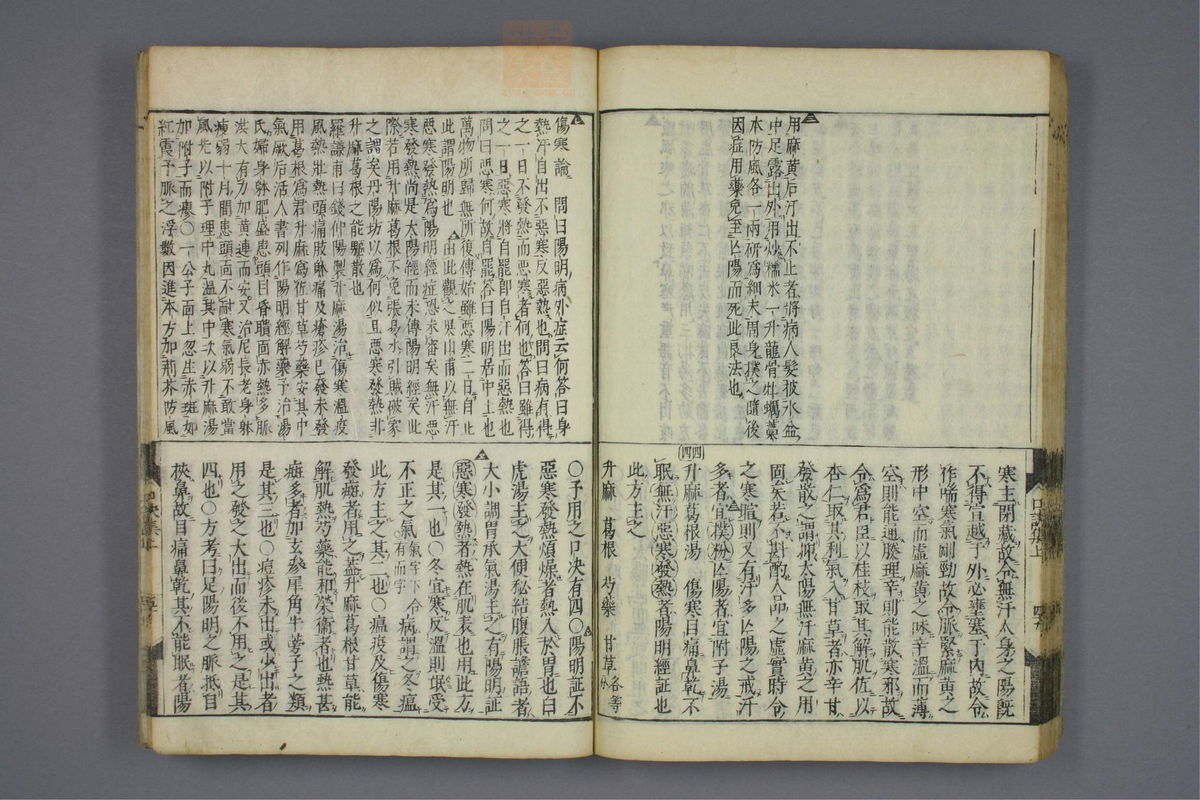 用麻黄后汗出不止者將病人髮披水盆
中足露出外用炒糯米一升龍骨牡蠣藁
本防風各一兩研爲細末周身撲之隨後
因症用藥免至亡陽而死此良法也
寒主閉藏故令無汗太身之陽既
不得宣越于外必壅塞于内故令
作喘寒氣剛勁故令脈緊麻黄之
形中空而虛麻黄之味辛溫而薄
空則能通腠理辛則能散寒邪故
令爲君臣以桂枝取其解肌佐以
杏仁取其利氣入甘草者亦辛甘
發散之謂抑太陽無汗麻黄之用
固矣若不斟酌人品之虛實時令
之寒暄則又有汗多亡陽之戒汗
多者宜撲粉亡陽者宜附子湯
四四
升麻葛根湯　傷寒目痛鼻乾不
眠無汗惡寒發熱者陽明經証也
此方主之
升麻　葛根　芍藥　甘草各等分
傷寒論　問曰陽明病外症云何答曰身
熱汗自出不惡寒反惡熱也問曰病有得
之一日不發熱而惡寒者何也答曰雖得
之一日惡寒將自罷即自汗出而惡熱也
問曰惡寒何故自罷答曰陽明居中土也
萬物所歸無所復傳始雖惡寒二日自止
此謂陽明也　由此觀之吳山甫以無汗
惡寒發熱爲陽明經症恐未審矣無汗惡
寒發熱尚是太陽經而未傳陽明經矣此
際若用升麻葛根不免張易水引賊破家
之謂矣丹陽坊以爲何似且惡寒發熱非
升麻葛根之能驅散也
羅謙甫曰錢仲陽製升麻湯治傷寒溫疫
風熱壯熱頭痛肢躰痛及瘡疹已發未發
用葛根爲君升麻爲佐甘草芍藥安其中
氣厥后活人書列作陽明經解藥予治湯
氏婦身躰肥盛患頭目昏聵面赤熱多脈
洪大有力加黄連而安又治尼長老身躰
痩弱十月間患頭面不耐寒氣弱不敢當
風先以附子理中丸溫其中次以升麻湯
加附子而瘳○一公子面上忽生赤斑如
紅霞予脈之浮數因進本方加荊芥防風
○予用之口决有四○陽明証不
惡寒發熱煩燥者熱入於胃也白
虎湯主之大便秘結腹脹譫語者
大小調胃承氣湯主之有陽明証
惡寒發熱者熱在肌表也用此方
是其一也○冬宜寒反溫則氓受
不正之氣氣字下○有而字令病謂之冬瘟
此方主之其二也○瘟疫及傷寒
發癍者用之蓋升麻葛根甘草能
解肌熱芍藥能和榮衛者也熱甚
癍多者加玄參犀角牛蒡子之類
是其三也○痘疹未出或少出者
用之發之大出而後不用之是其
四也○方考曰足陽明之脈抵目
挾鼻故目痛鼻乾其不能眠者陽